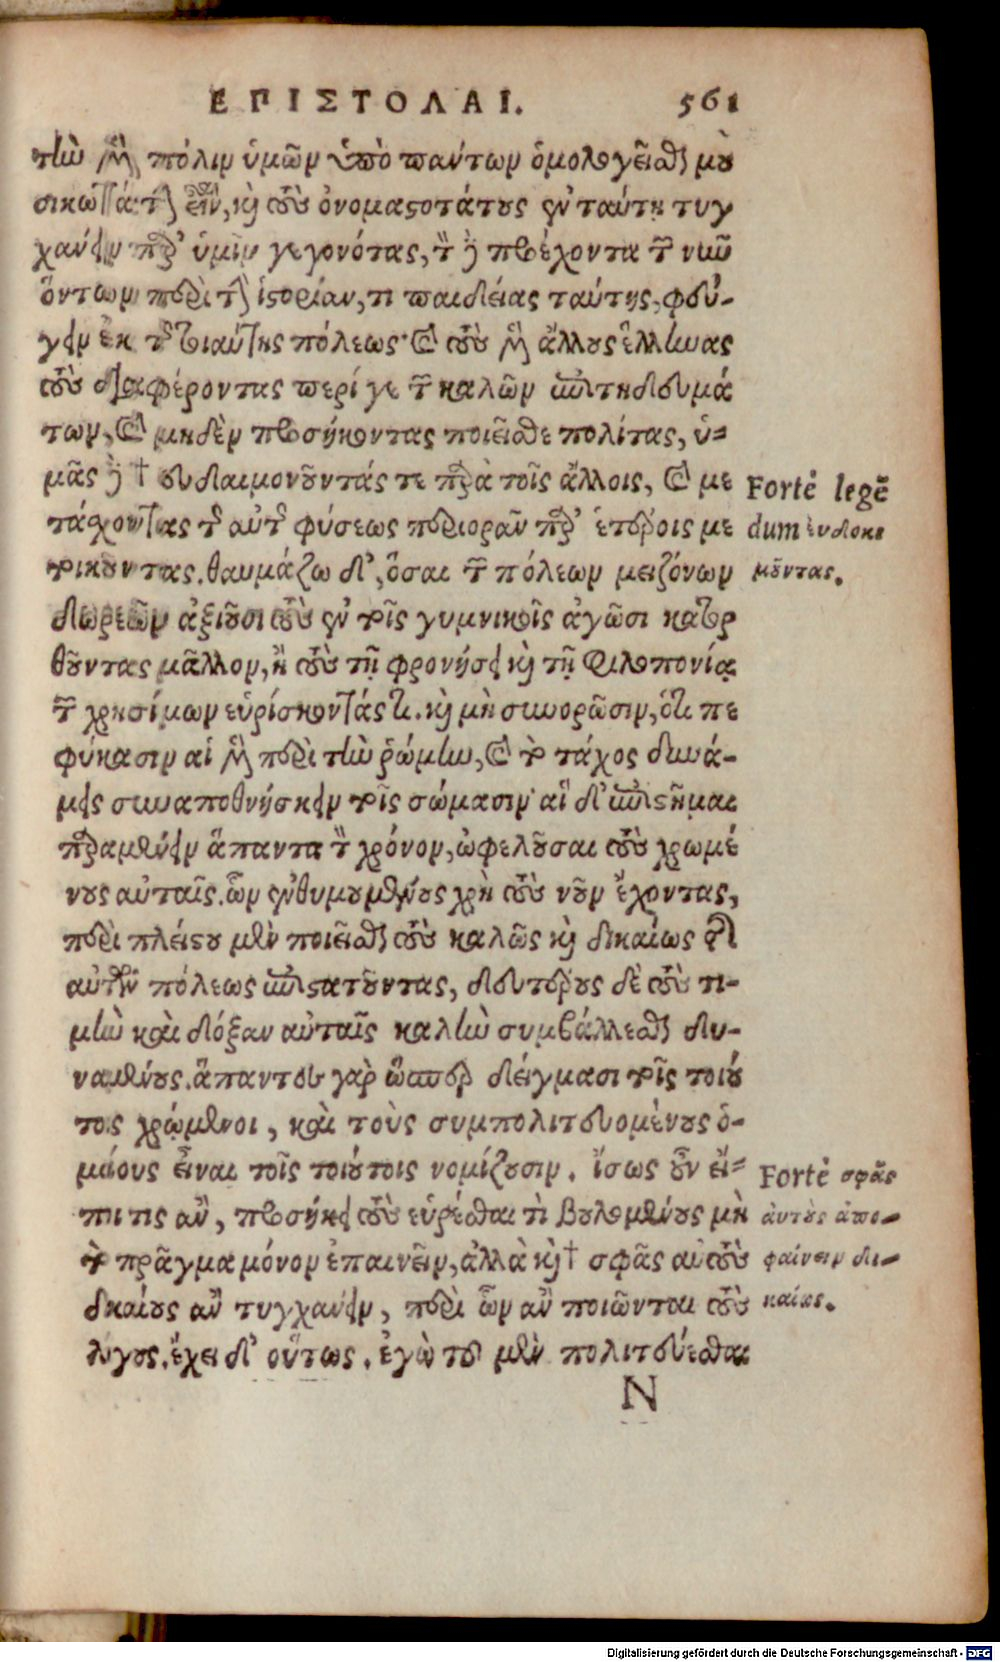 ΕΠΙΣΤΟΛΑΙ. 561
τὴν μὲν πόλιν ὑμῶν ὑπὸ πάντων ὁμολογεῖσθαι μου
σικωτάτην εἶναι, καὶ τοὺς ὀνομαστοτάτους ἐν ταύτῃ τυγ
χάνειν παρ' ὑμῖν γεγονότας, τὸν δὲ προέχοντα τῶν νῦν
ὄντων περὶ τὴν ἱστορίαν, τι παιδείας ταύτης, φεύ-
γειν ἐκ τῆς τοιαύτης πόλεως· καὶ τοὺς μὲν ἄλλους ἕλληνας
τοὺς διαφέροντας περί γε τῶν καλῶν ἐπιτηδευμά
των, καὶ μηδὲν προσήκοντας ποιεῖσθε πολίτας, ὑ-
μᾶς δὲ † ευδαιμονοῦντάς τε παρὰ τοῖς ἄλλοις, καὶ με
τάχοντας τῆς αὐτῆς φύσεως περιορᾶν παρ' ἑτέροις με
τοικοῦντας. θαυμάζω δ', ὅσαι τῶν πόλεων μειζόνων
δωρεῶν ἀξιοῦσι τοὺς ἐν τοῖς γυμνικοῖς ἀγῶσι κατορ
θοῦντας μᾶλλον, ἢ τοὺς τῇ φρονήσει καὶ τῇ φιλοπονίᾳ
τῶν χρησίμων εὑρίσκοντάς τι. καὶ μὴ συνορῶσιν, ὅτι πε
φύκασιν αἱ μὲν περὶ τὴν ῥώμην, καὶ τὸ τάχος δυνά-
μεις συναποθνήσκειν τοῖς σώμασιν· αἱ δ' ἐπιστῆμαι
παραμένειν ἅπαντα τὸν χρόνον, ὠφελοῦσαι τοὺς χρωμέ
νους αὐταῖς. ὧν ἐνθυμουμένους χρὴ τοὺς νοῦν ἔχοντας,
περὶ πλείστου μὲν ποιεῖσθαι τοὺς καλῶς καὶ δικαίως τῆς
αὐτῶν πόλεως ἐπιστατοῦντας, δευτέρους δὲ τοὺς τι-
μὴν καὶ δόξαν αὐταῖς καλὴν συμβάλλεσθαι δυ-
ναμένους. ἅπαντες γὰρ ὥσπερ δείγμασι τοῖς τοιού
τοις χρώμενοι, καὶ τοὺς συμπολιτευομένους ὁ-
μοίους εἶναι τοῖς τοιούτοις νομίζουσιν. ἴσως οὖν εἴ-
ποι τις ἂν, προσήκει τοὺς εὑρέσθαι τὶ βουλομένους μὴ
τὸ πρᾶγμα μόνον ἐπαινεῖν, ἀλλὰ καὶ † σφᾶς αὐτοὺς
δικαίους ἂν τυγχάνειν, περὶ ὧν ἂν ποιῶνται τοὺς
λόγους. ἔχει δ' οὕτως. ἐγὼ τοῦ μὲν πολιτεύεσθαι
N
Fortè legẽ
dum εὐδοκι
μοῦντας.
Fortè σφᾶς
ἀυτοὺς ἀπο-
φαίνειν δι-
καίως.
Digitalisierung gefördert durch die Deutsche Forschungsgemeinschaft - DFG